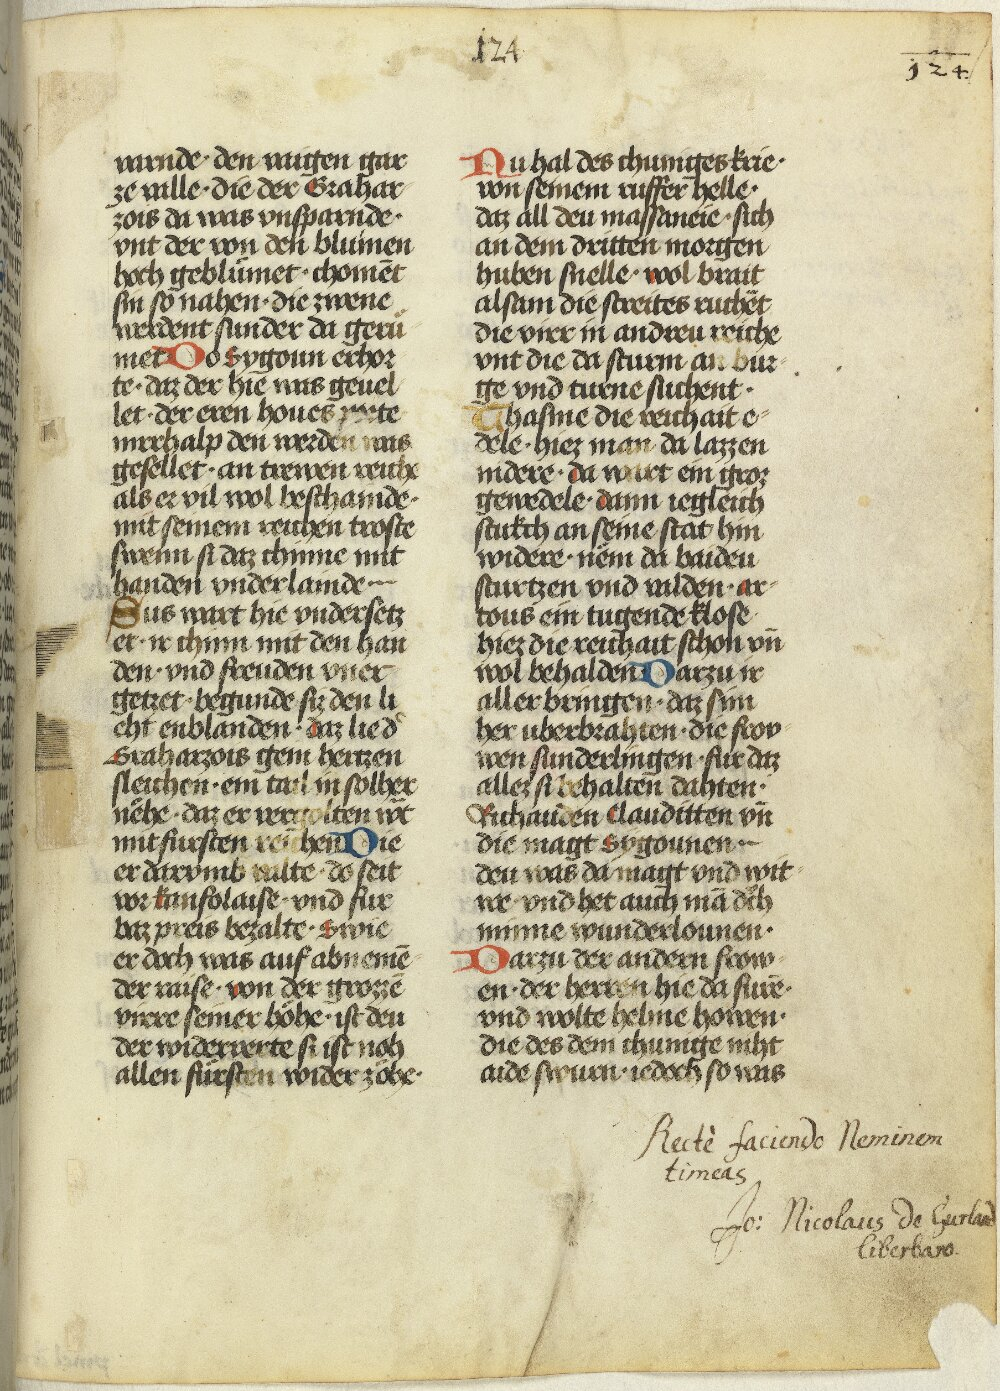 124
124
wunde · den augen gar
ze valle · die der Grahar
zois da was vnsparnde ·
vnt der von den blumen
hoch geblümet · chomēt
sin so nahen · die zwene
werdent sunder da gerü
met Do Sygoun erhor
te · daz der hie was geuel
let · der eren houes
innerhalp den werden was
gesellet · an trewen reiche
als er vil wol beschainde ·
mit seinem reichen troste
swenn si daz chinne mit
handen vnderlainde
Sus wart hie vndersetz
et · ir chinn mit den han
den · vnd freuden vner
getzet · begunde siz den li
eht enblanden · daz lied
Graharzois gein hertzen
sleichen · ein tail in solher
nëhe · daz er vergolten wt
mit fursten reichen Die
er darvmb valte · do seit
vor kanfolaise · vnd fur
baz preis bezalte · Swie
er doch was auf abnemē
der raise · von der grozzē
vierre seiner höhe · ist deu
der widerverte si ist noh
allen fürsten wider zöhe ·
Nu hal des chuniges krie ·
von seinem ruffer helle ·
daz all deu massaneie · sich
an dem dritten morgen
huben snelle · wol brait
alsam die streites ruchēt
die vier in andreu reiche
vnt die da sturm an bur
ge vnd turne suchent ·
Thasme die reichait e
dele · hiez man da lazzen
nidere · da wart ein groz
gewedele · dann iegleich
stukch an seine stat hin
widere · nëm da baideu
sturtzen vnd valden · ar
tous ein tugende klose
hiez die reichait schon vn̄
wol behalden Darzu ir
aller bringen · daz si im
her uberbrahten · die frow
wen sunderlingen · fur daz
allez si behalten dahten ·
Ruhauden Clauditten vn̄
die magt Sygounen
deu was da magt vnd wit
we · vnd het auch mā doch
minne wunderlounen ·
Darzu der andern frow
en · der herren hie da furē ·
vnd wolte helme howen ·
die des dem chunige niht
aide swurn · iedoch so was
Rectè faciendo Neminem
timeas
Jo: Nicolaus De Gurland
liberbaro.